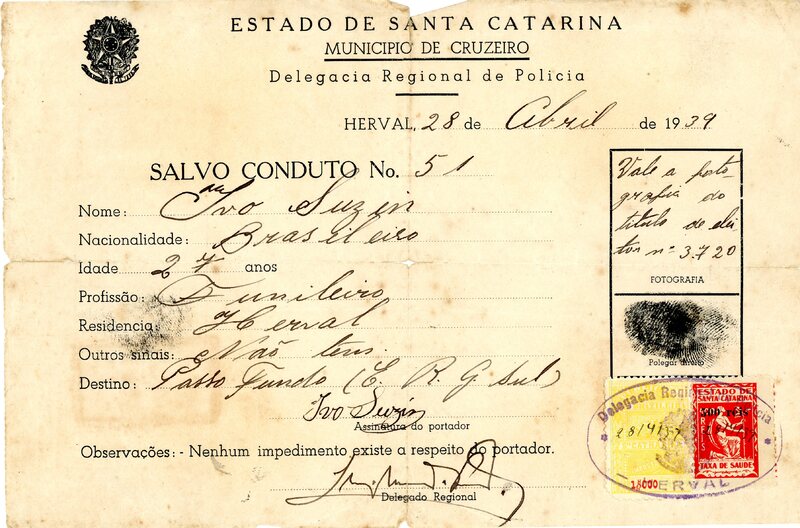 ESTADO DE SANTA CATARINA
MUNICIPIO DE CRUZEIRO
Delegacia Regional de Policia
HERVAL, 28 de Abril de 1939
SALVO CONDUTO No. 51
Nome: Ivo Suzin
Nacionalidade: Brasileiro
Idade 27 anos
Profissão: Funileiro
Residencia: Herval
Outros sinais: Não tem.
Destino: Passo Fundo (E. R. G. Sul)
Ivo Suzin
Assinatura do portador
Observações: - Nenhum impedimento existe a respeito do portador.
Delegado Regional
Vale a foto-
grafia do
titulo de elei
tor nº 3.720
FOTOGRAFIA
Polegar direito
ESTADO DE
SANTA CATARINA
TAXA DE SAUDE
Delegacia
HERVAL